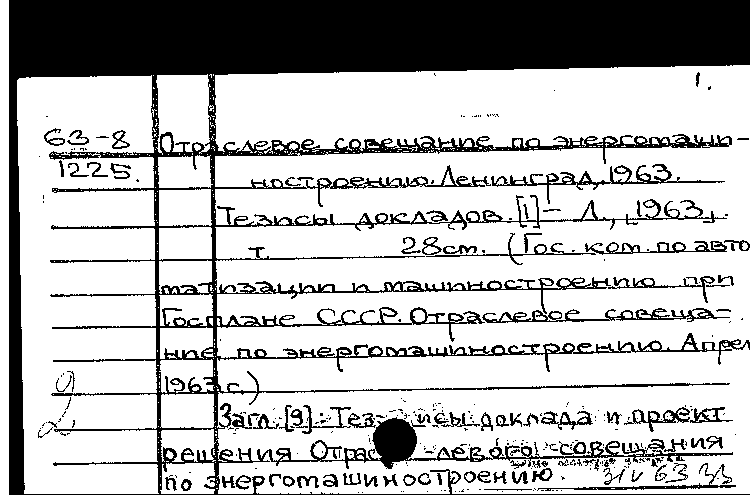 1.
63-8 Отраслевое совещание по энергомаши-
1225. ностроению. Ленинград, 1963.
Тезисы докладов. [1] - Л., [1963].
т. 28см. (Гос. ком. по авто
матизации и машиностроению при
Госплане СССР. Отраслевое совеща-
ние по энергомашиностроению. Апрел
1963 г.)
2
Загл. [9]: Тезисы доклада и проект
решения Отрас-левого совещания
по энергомашиностроению.